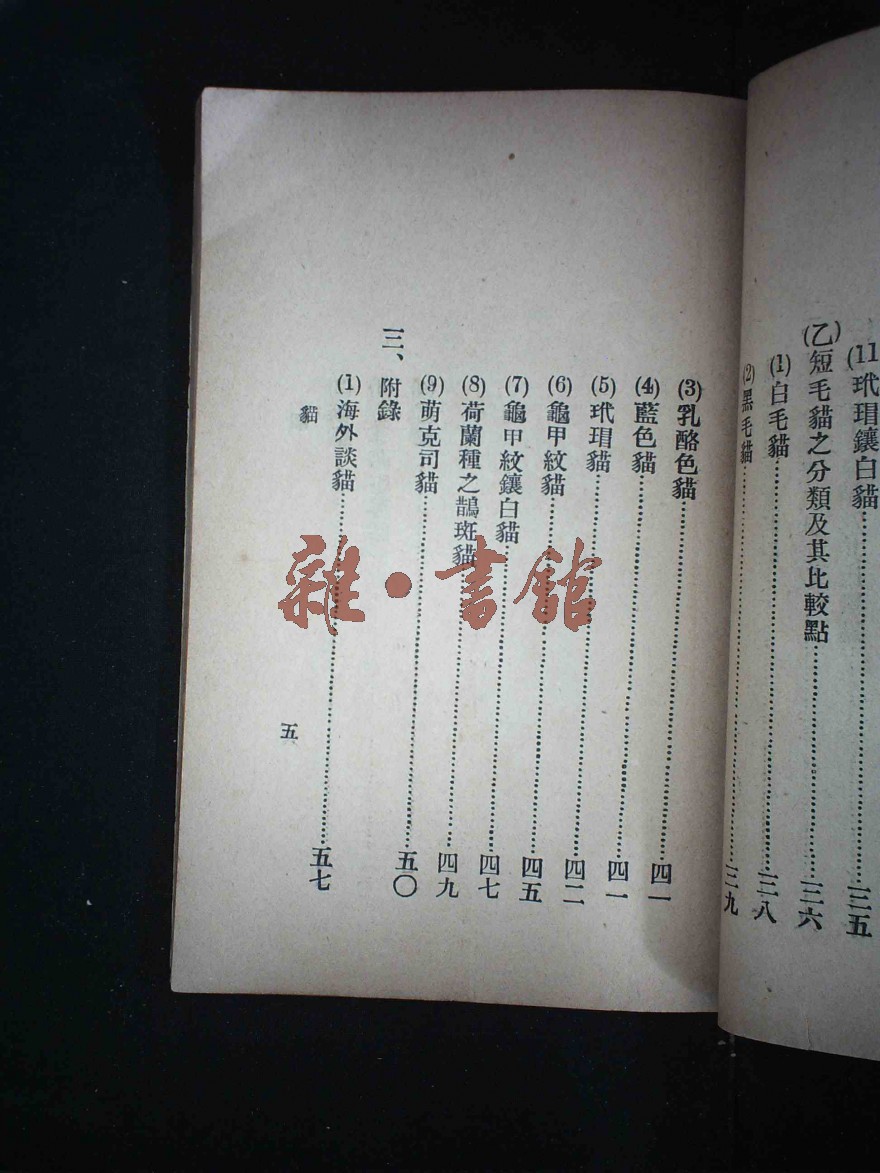 (11)玳瑁鑲白貓……三五
(乙)短毛貓之分類及其比較點……三六
(1)白毛貓……三八
(2)黑毛貓……三九
(3)乳酪色貓……四一
(4)藍色貓……四一
(5)玳瑁貓……四一
(6)龜甲紋貓……四二
(7)龜甲紋鑲白貓……四五
(8)荷蘭種之鵲斑貓……四七
(9)萌克司貓……四九
三、附錄……五〇
(1)海外談貓……五七
貓
五
雜·書館